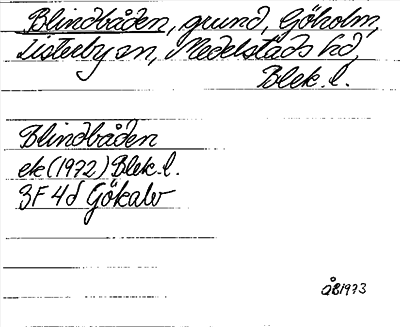 Blindbåden, grund, Göholm,
Listerby sn, Medelstads hd,
Blek. l.
Blindbåden
ek (1972) Blek. l.
3F 4d Gökalv
ÅB 1973